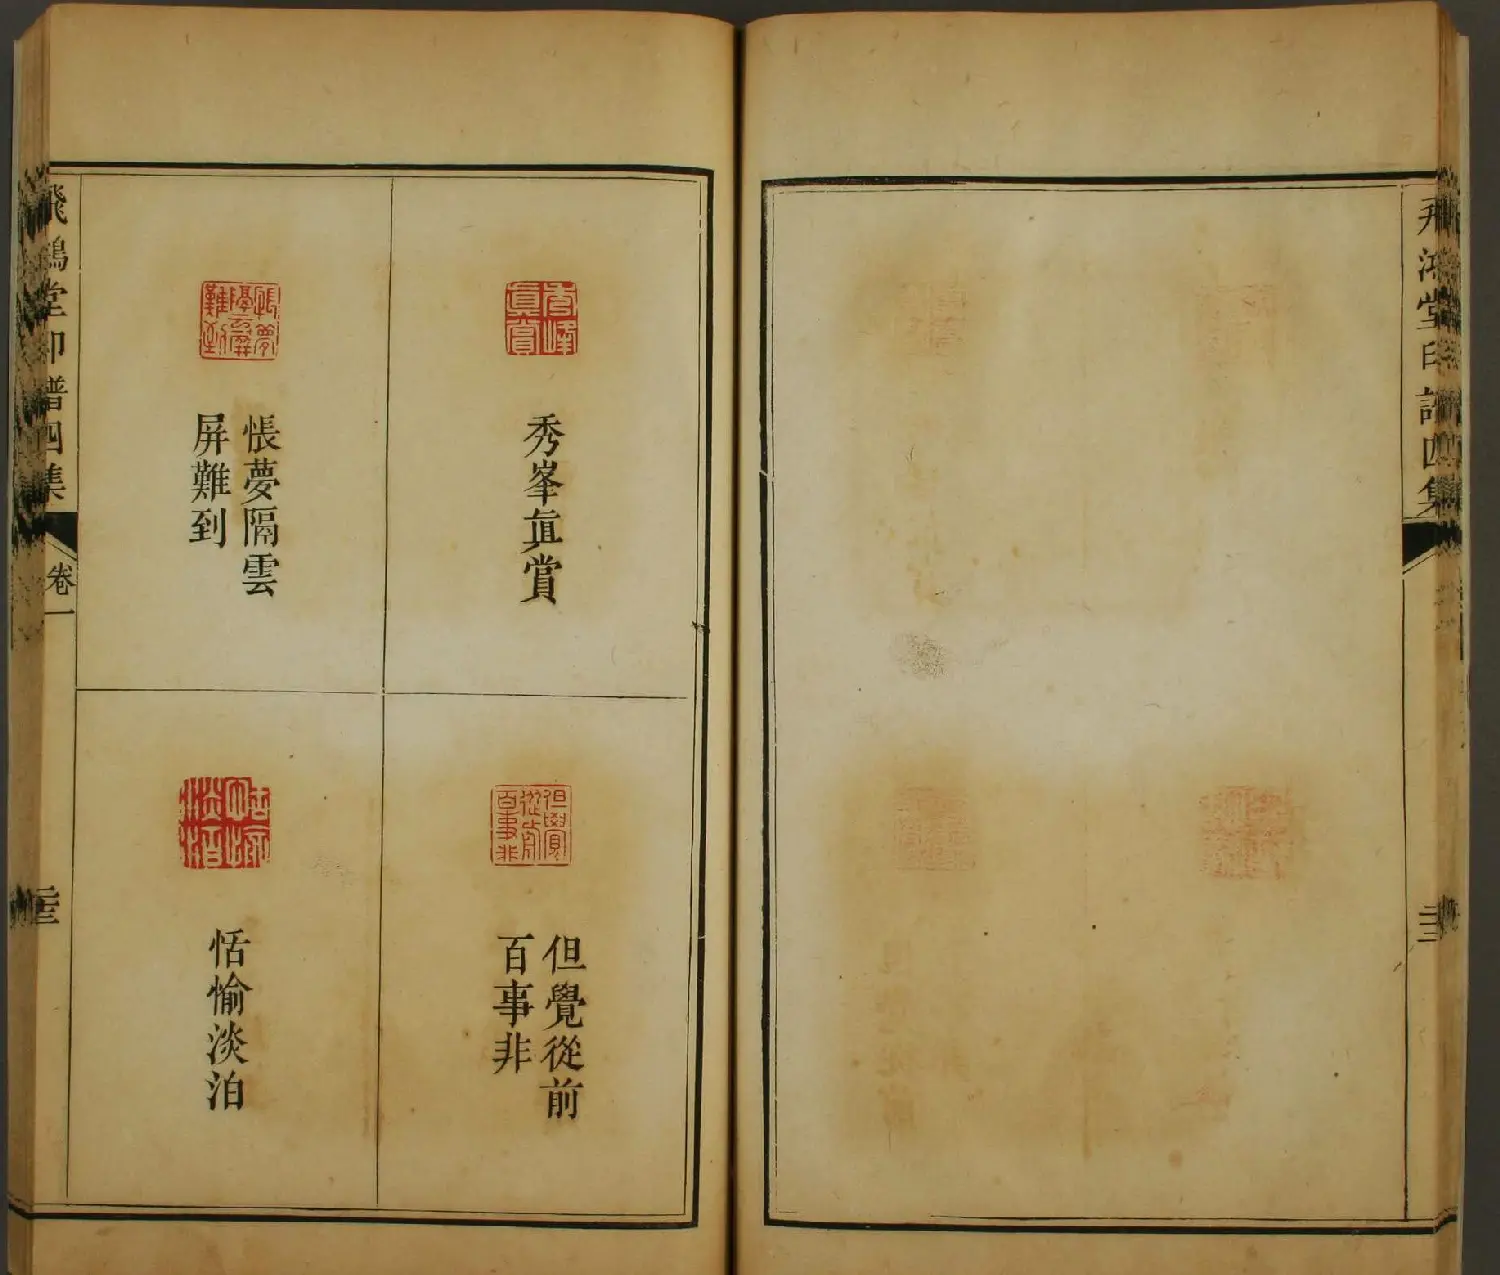 飛鴻堂印譜四集
秀峯眞賞
悵夢隔雲
屏難到
但覺從前
百事非
恬愉淡泊
飛鴻堂印譜四集
卷一